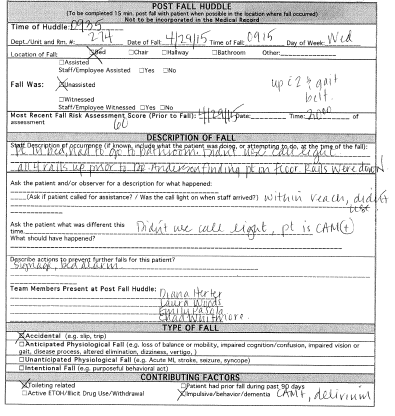 POST FALL HUDDLE
(To be completed 15 min. post fall with patient when possible in the location where fall occurred)
Not to be incorporated in the Medical Record
Time of Huddle: 0935
Dept./Unit and Rm. #: 274 Date of Fall: 4/29/15 Time of Fall: 0915 Day of Week: Wed
Location of Fall: ☒Bed ☐Chair ☐Hallway ☐Bathroom Other:
☐Assisted
Staff/Employee Assisted ☐Yes ☐No
Fall Was: ☒Unassisted
up c̄ 2 & gait belt.
☐Witnessed
Staff/Employee Witnessed ☐Yes ☐No
Most Recent Fall Risk Assessment Score (Prior to Fall): 4/29/15 Date: Time: of
assessment 60
DESCRIPTION OF FALL
Staff Description of occurrence (if known, include what the patient was doing, or attempting to do, at the time of the fall):
pt in bed, had to go to bathroom. Didn't use call light
all 4 rails up prior to finding pt on floor. Rails were down
Ask the patient and/or observer for a description for what happened:
(Ask if patient called for assistance? / Was the call light on when staff arrived?) within reach, didn't use
Ask the patient what was different this
time Didn't use call light, pt is CAM(+)
What should have happened?
Describe actions to prevent further falls for this patient?
signage, bed alarm
Team Members Present at Post Fall Huddle:
Diana Herter
Laura Woods
Emily
Chad Whitmore
TYPE OF FALL
☒Accidental (e.g. slip, trip)
☐Anticipated Physiological Fall (e.g. loss of balance or mobility, impaired cognition/confusion, impaired vision or
gait, disease process, altered elimination, dizziness, vertigo, )
☐Unanticipated Physiological Fall (e.g. Acute MI, stroke, seizure, syncope)
☐Intentional Fall (e.g. purposeful behavioral act)
CONTRIBUTING FACTORS
☒Toileting related ☐Patient had prior fall during past 90 days
☐Active ETOH/Illicit Drug Use/Withdrawal ☒Impulsive/behavior/dementia CAM+, delirium